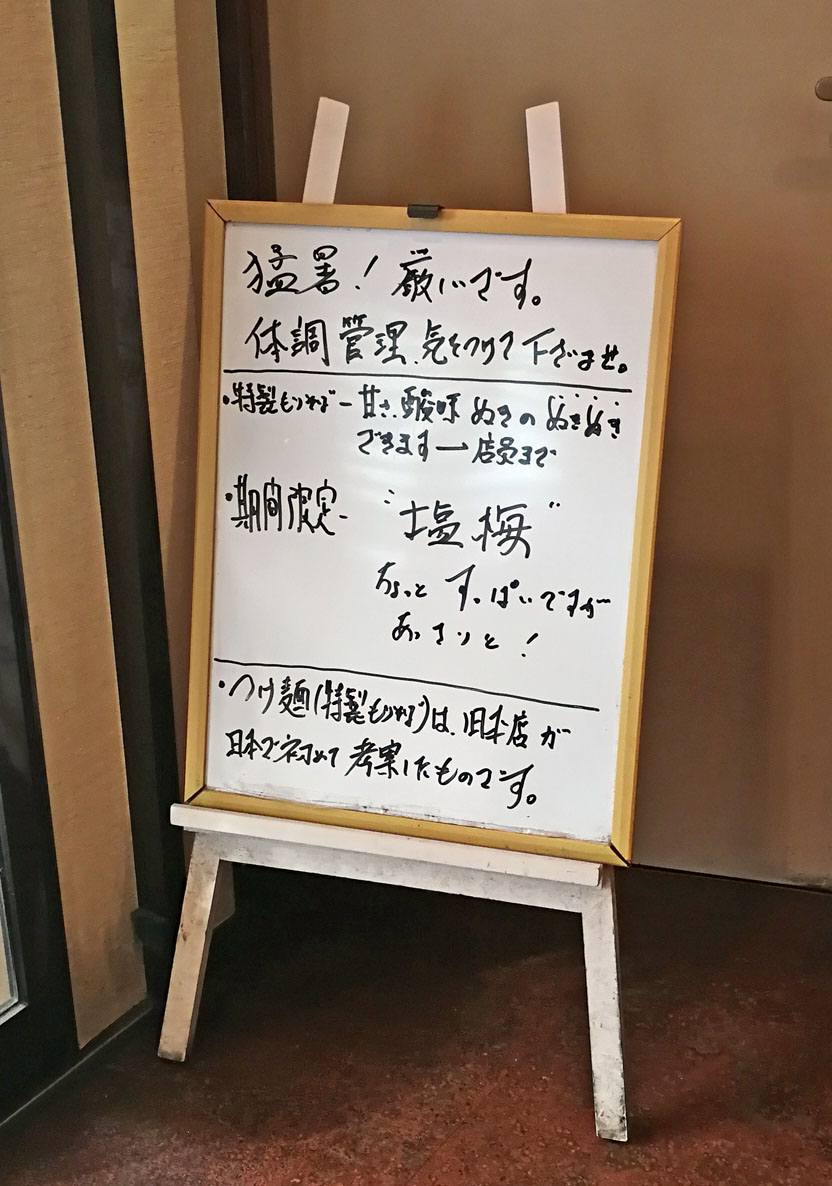 猛暑！厳しいです。
体調管理、気をつけて下ざませ。
・特製もりそば－甘さ、酸味ぬきのぬきぬき
できます→店員まで
・期間限定－"塩梅"
ちょっとすっぱいですが
あっさりと！
・つけ麺(特製もりそば)は、旧本店が
日本で初めて考案したものです。